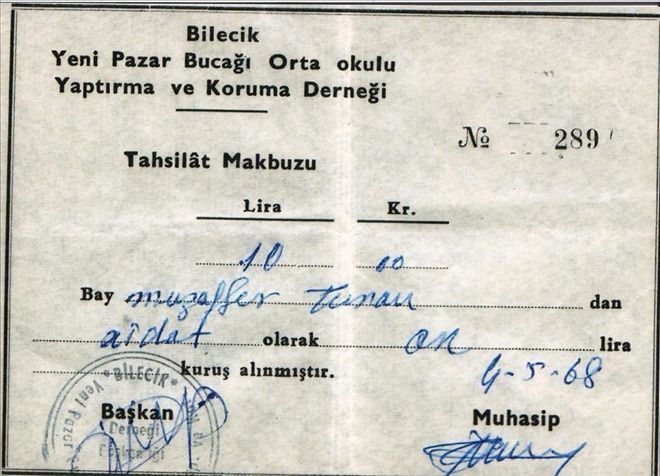 Bilecik
Yeni Pazar Bucağı Orta okulu
Yaptırma ve Koruma Derneği
№ 289
Tahsilât Makbuzu
Lira Kr.
10 00
Bay muzaffer dan
aidat olarak on lira
kuruş alınmıştır. 4-5-68
Başkan Muhasip
*BİLECİK* Yeni Pazar
Derneği